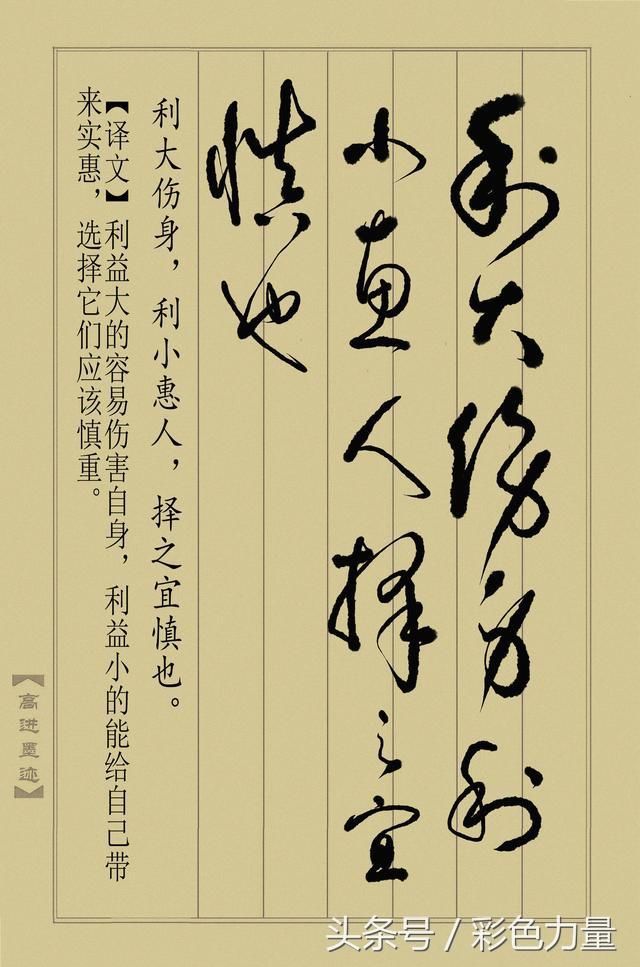 利大伤身利
小惠人择之宜
慎也
利大伤身，利小惠人，择之宜慎也。
【译文】利益大的容易伤害自身，利益小的能给自己带
来实惠，选择它们应该慎重。
【高进墨迹】
头条号／彩色力量